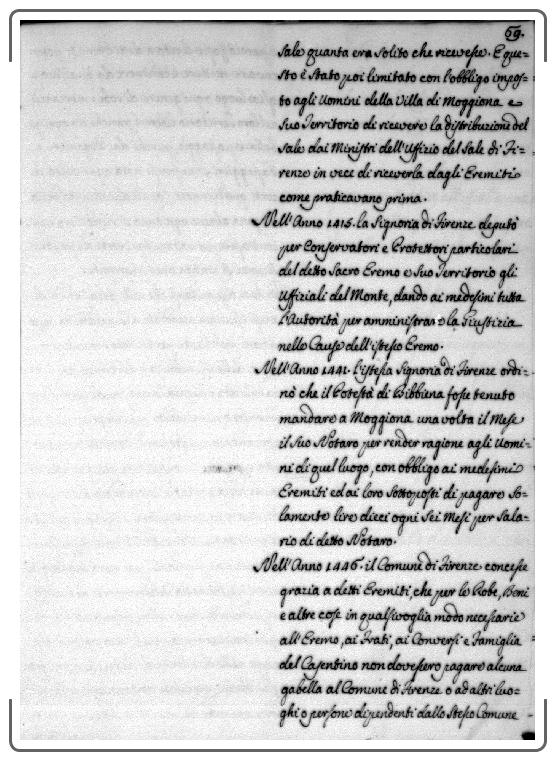 69.
Sale quanta era solito che ricevesse. E que-
sto è stato poi limitato con l'obbligo impos-
to agli Uomini della Villa di Moggiona e
suo Territorio di ricevere la distribuzione del
Sale dai Ministri dell'Uffizio del Sale di Fi-
renze in vece di riceverla dagli Eremiti
come praticavano prima.
Nell'Anno 1415. la Signoria di Firenze deputò
per Conservatori e Protettori particolari
del detto Sacro Eremo e suo Territorio gli
Uffiziali del Monte, dando ai medesimi tutta
l'Autorità per amministrare la Giustizia
nelle Cause dell'istesso Eremo.
Nell'Anno 1441. l'istessa Signoria di Firenze ordi-
nò che il Potestà di Bibbiena fosse tenuto
mandare a Moggiona una volta il Mese
il suo Notaro per render ragione agli Uomi-
ni di quel luogo, con obbligo ai medesimi
Eremiti ed ai loro sottoposti di pagare so-
lamente lire dieci ogni sei Mesi per Sala-
rio di detto Notaro.
Nell'Anno 1446. il Comune di Firenze concesse
grazia a detti Eremiti, che per le Robe, Beni
e altre cose in qualsivoglia modo necessarie
all'Eremo, ai Frati, ai Conversi e Famiglia
del Casentino non dovessero pagare alcuna
gabella al Comune di Firenze o ad altri luo-
ghi o persone dipendenti dallo stesso Comune